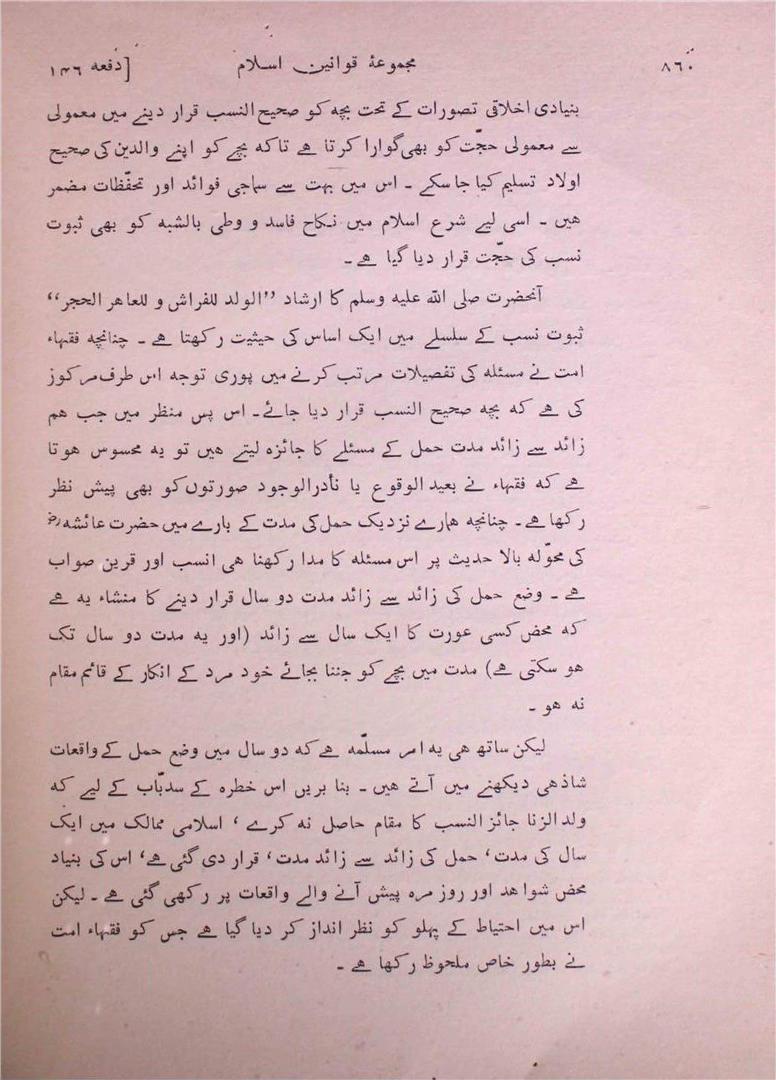 ۸۶۰ مجموعۂ قوانین اسلام [دفعه ۱۴۶
بنیادی اخلاقی تصورات کے تحت بچہ کو صحیح النسب قرار دینے میں معمولی
سے معمولی حجّت کو بھی گوارا کرتا ہے تاکہ بچے کو اپنے والدین کی صحیح
اولاد تسلیم کیا جا سکے ۔ اس میں بہت سے سماجی فوائد اور تحفّظات مضمر
ہیں ۔ اسی لیے شرع اسلام میں نکاح فاسد و وطی بالشبہ کو بھی ثبوت
نسب کی حجّت قرار دیا گیا ہے ۔
آنحضرت صلی اللہ علیہ وسلم کا ارشاد ”الولد للفراش و للعاهر الحجر“
ثبوت نسب کے سلسلے میں ایک اساس کی حیثیت رکھتا ہے ۔ چنانچہ فقہاء
امت نے مسئلہ کی تفصیلات مرتب کرنے میں پوری توجہ اس طرف مرکوز
کی ہے کہ بچہ صحیح النسب قرار دیا جائے ۔ اس پس منظر میں جب ہم
زائد سے زائد مدت حمل کے مسئلے کا جائزہ لیتے ہیں تو یہ محسوس ہوتا
ہے کہ فقہاء نے بعید الوقوع یا نأدرالوجود صورتوں کو بھی پیش نظر
رکھا ہے ۔ چنانچہ ہمارے نزدیک حمل کی مدت کے بارے میں حضرت عائشہ رض
کی محوّلہ بالا حدیث پر اس مسئلہ کا مدا رکھنا ہی انسب اور قرین صواب
ہے ۔ وضع حمل کی زائد سے زائد مدت دو سال قرار دینے کا منشاء یہ ہے
کہ محض کسی عورت کا ایک سال سے زائد (اور یہ مدت دو سال تک
ہو سکتی ہے) مدت میں بچے کو جننا بجائے خود مرد کے انکار کے قائم مقام
نہ ہو ۔
لیکن ساتھ ہی یہ امر مسلّمہ ہے کہ دو سال میں وضع حمل کے واقعات
شاذ ہی دیکھنے میں آتے ہیں ۔ بنا بریں اس خطرہ کے سدبّاب کے لیے کہ
ولد الزنا جائز النسب کا مقام حاصل نہ کرے ، اسلامی ممالک میں ایک
سال کی مدت ، حمل کی زائد سے زائد مدت ، قرار دی گئی ہے ، اس کی بنیاد
محض شواہد اور روز مرہ پیش آنے والے واقعات پر رکھی گئی ہے ۔ لیکن
اس میں احتیاط کے پہلو کو نظر انداز کر دیا گیا ہے جس کو فقہاء امت
نے بطور خاص ملحوظ رکھا ہے ۔